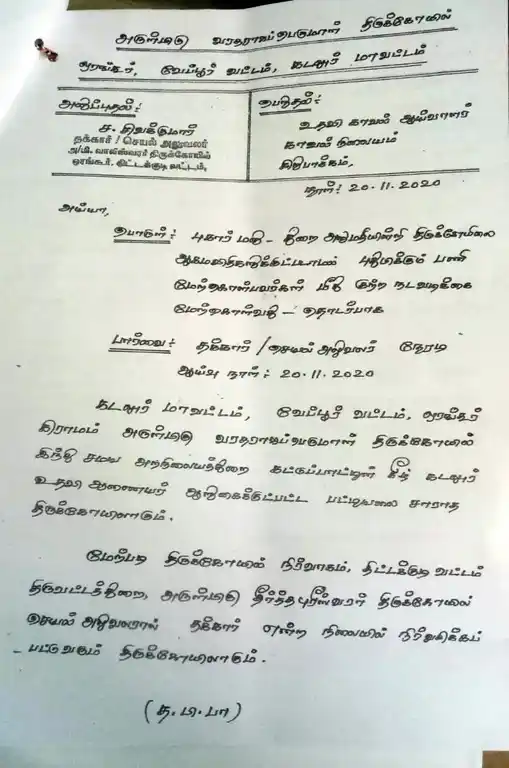 அருள்மிகு வரதராஜப்பெருமாள் திருக்கோயில்
அரங்கூர், வேப்பூர் வட்டம், கடலூர் மாவட்டம்
அனுப்புதல்:
ச. சிவக்குமார்
தக்கார் / செயல் அலுவலர்
அ/மி. வாலீஸ்வரர் திருக்கோயில்
ஒரங்கூர், திட்டக்குடி வட்டம்,
பெறுதல்:
உதவி காவல் ஆய்வாளர்
காவல் நிலையம்
சிறுபாக்கம்,
நாள்: 20.11.2020
அய்யா,
பொருள்: புகார் மனு - துறை அனுமதியின்றி திருக்கோயிலை
ஆகமவிதிகளுக்குட்படாமல் புதுப்பிக்கும் பணி
மேற்கொள்பவர்கள் மீது குற்ற நடவடிக்கை
மேற்கொள்வது - தொடர்பாக
பார்வை: தக்கார் / செயல் அலுவலர் நேரடி
ஆய்வு நாள்: 20.11.2020
கடலூர் மாவட்டம், வேப்பூர் வட்டம், அரங்கூர்
கிராமம் அருள்மிகு வரதராஜப்பெருமாள் திருக்கோயில்
இந்து சமய அறநிலையத்துறை கட்டுப்பாட்டின் கீழ் கடலூர்
உதவி ஆணையர் ஆளுகைக்குட்பட்ட பட்டியலை சாராத
திருக்கோயிலாகும்.
மேற்படி திருக்கோயில் நிர்வாகம், திட்டக்குடி வட்டம்
திருவட்டத்துறை, அருள்மிகு தீர்த்தபுரீஸ்வரர் திருக்கோயில்
செயல் அலுவலரால் தக்கார் என்ற நிலையில் நிர்வகிக்கப்
-பட்டுவரும் திருக்கோயிலாகும்.
(த.பி.பா)